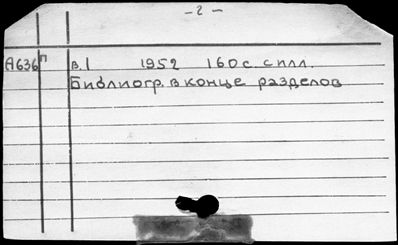 - 2 -
А636п в.1 1952 160с. с илл.
Библиогр. в конце разделов